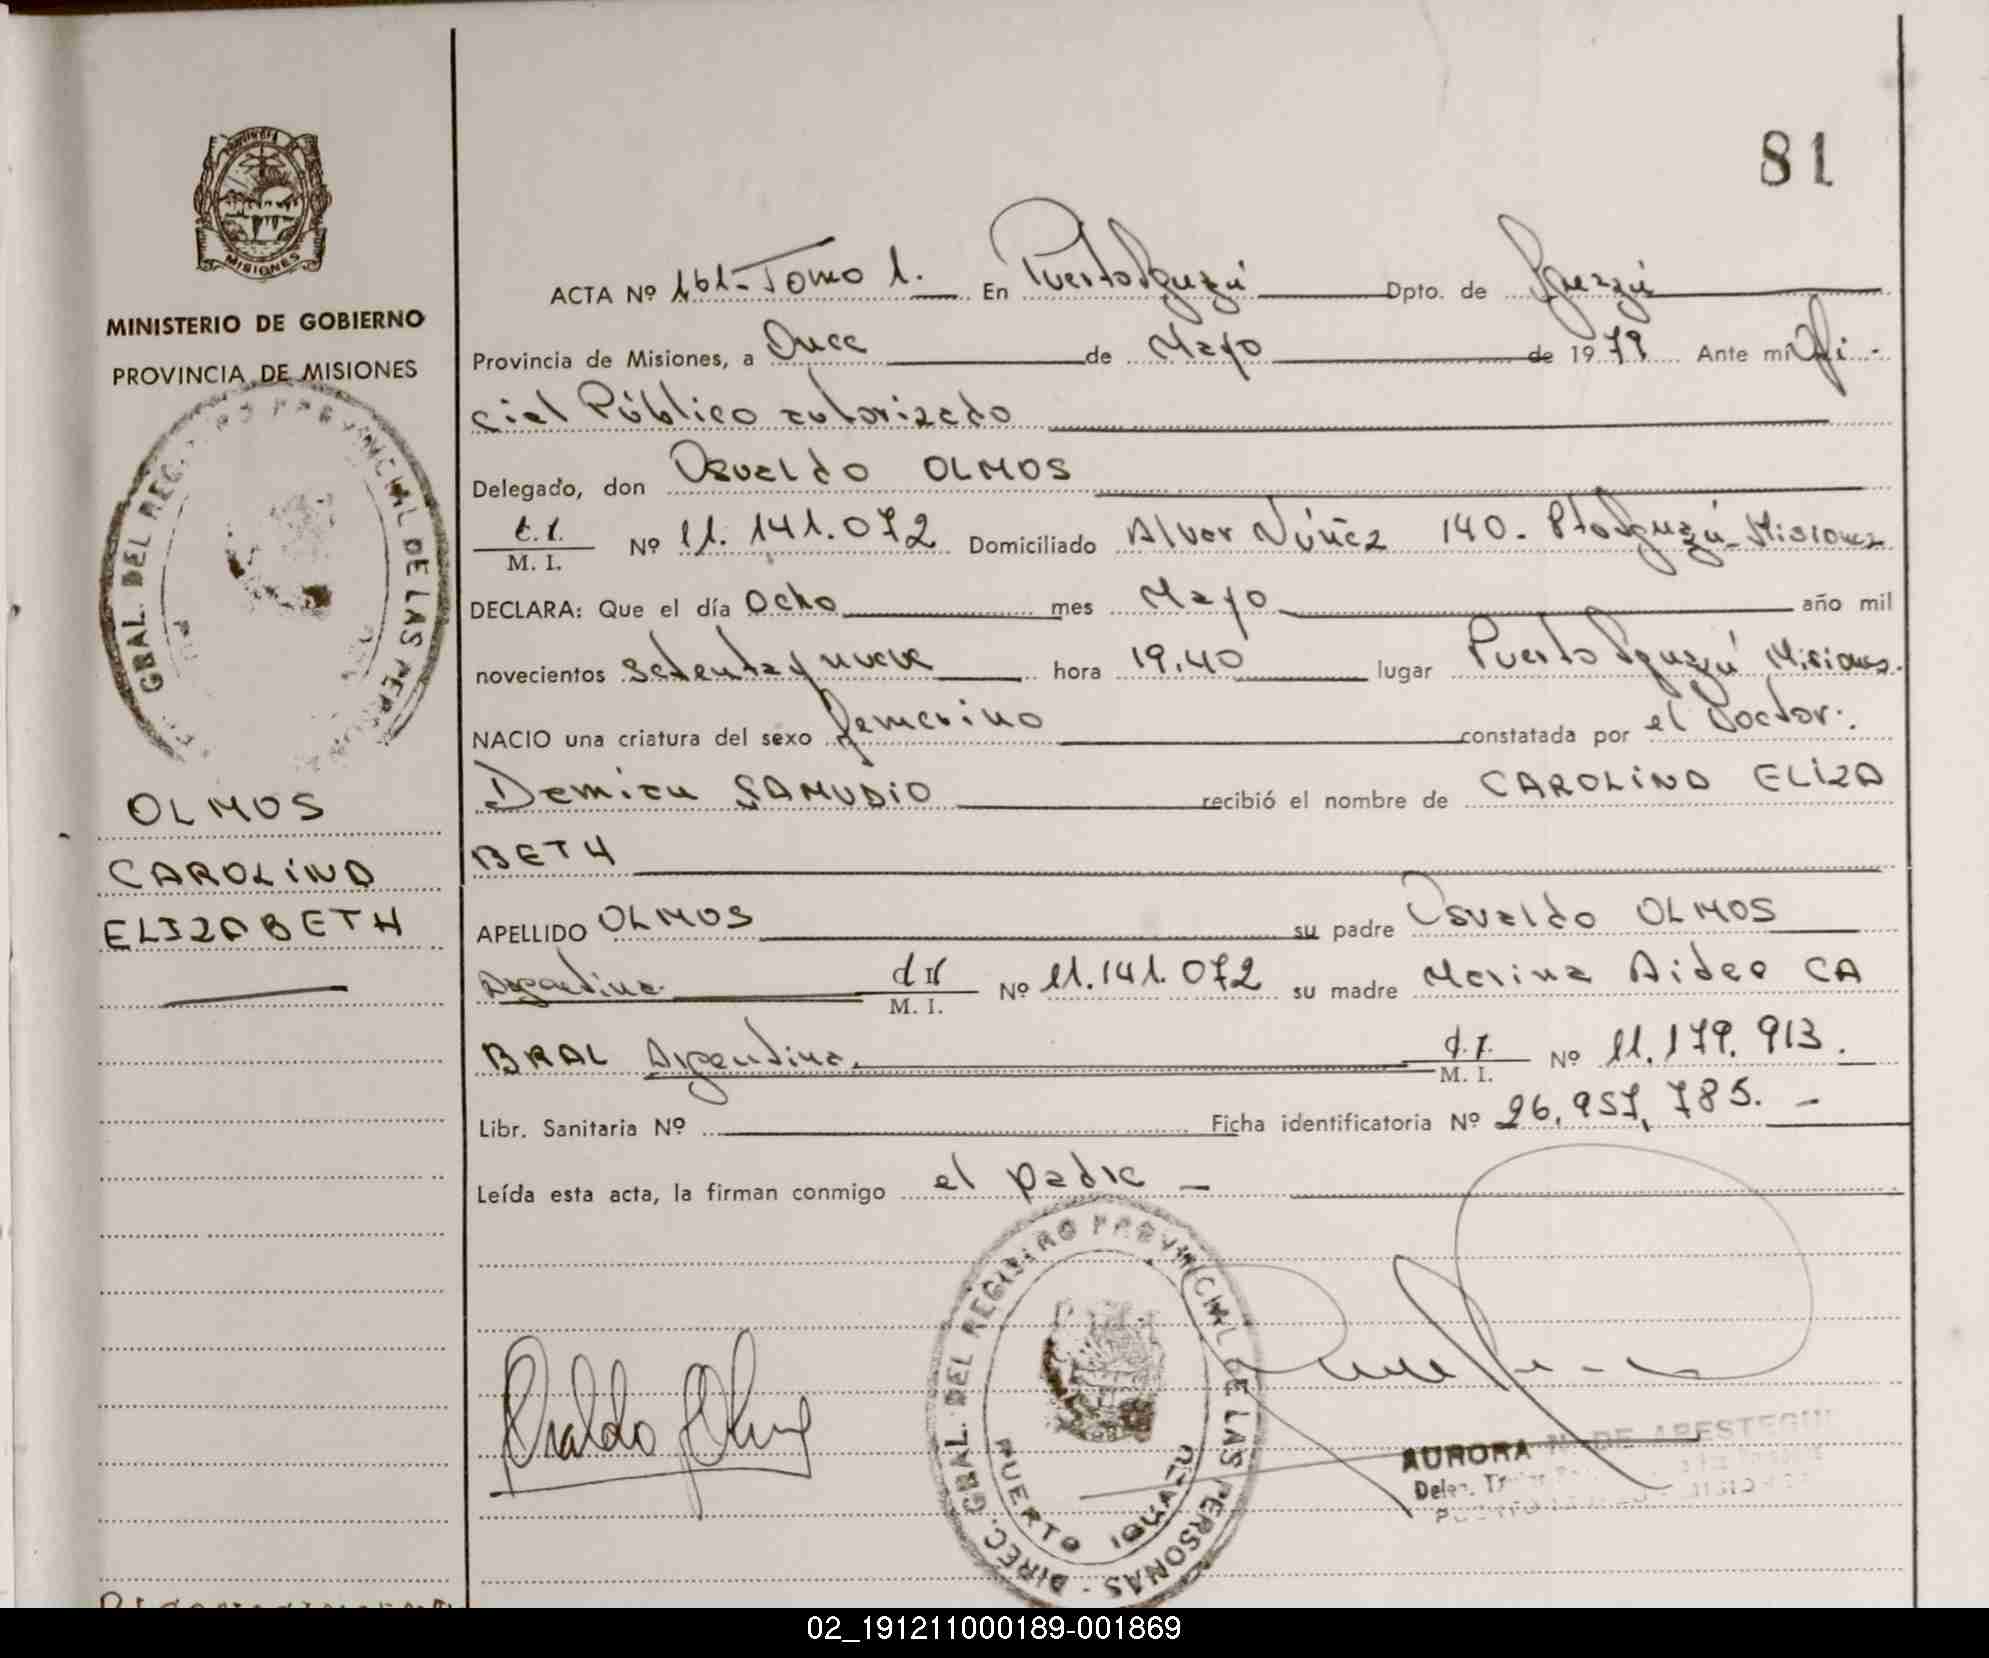 81
MISIONES
MINISTERIO DE GOBIERNO
PROVINCIA DE MISIONES
GRAL. DEL REG. PROVINCIAL DE LAS PERS
OLMOS
CAROLINA
ELIZABETH
ACTA Nº 161-Tomo 1. En Puerto Iguazú Dpto. de Iguazú
Provincia de Misiones, a Once de Mayo de 1979 Ante mi Ofi-
cial Público autorizado
Delegado, don Osvaldo OLMOS
M. I. Nº 11.141.072 Domiciliado Alvar Núñez 140. Pto Iguazú-Misiones
DECLARA: Que el día Ocho mes Mayo año mil
novecientos setenta y nueve hora 19.40 lugar Puerto Iguazú Misiones.
NACIO una criatura del sexo femenino constatada por el Doctor:
SAMUDIO recibió el nombre de CAROLINA ELIZA
BETH
APELLIDO OLMOS su padre Osvaldo OLMOS
Argentina. M. I. Nº 11.141.072 su madre Marina Aidee CA
BRAL Argentina. d.I. M. I. Nº 11.179.913.
Libr. Sanitaria Nº Ficha identificatoria Nº 26.957.785.-
Leída esta acta, la firman conmigo el padre -
DIREC. GRAL. DEL REGISTRO PROVINCIAL DE LAS PERSONAS -
PUERTO IGUAZU
AURORA N. DE ARESTEGUI
02_191211000189-001869